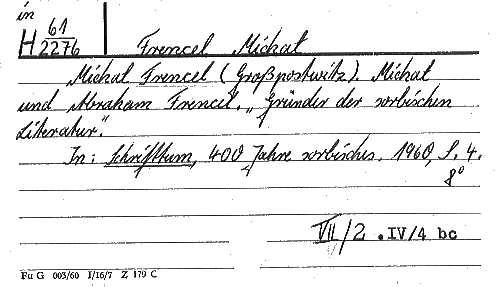 in
H 61/2276 Frencel Michał
Michał Frencel (Großpostwitz). Michał
und Abraham Frencel. „Gründer der sorbischen
Literatur".
In: Schrifttum, 400 Jahre sorbisches. 1960, S. 4.
8°
VII/2 . IV/4 bc
Fu G 003/60 I/16/7 Z 179 C